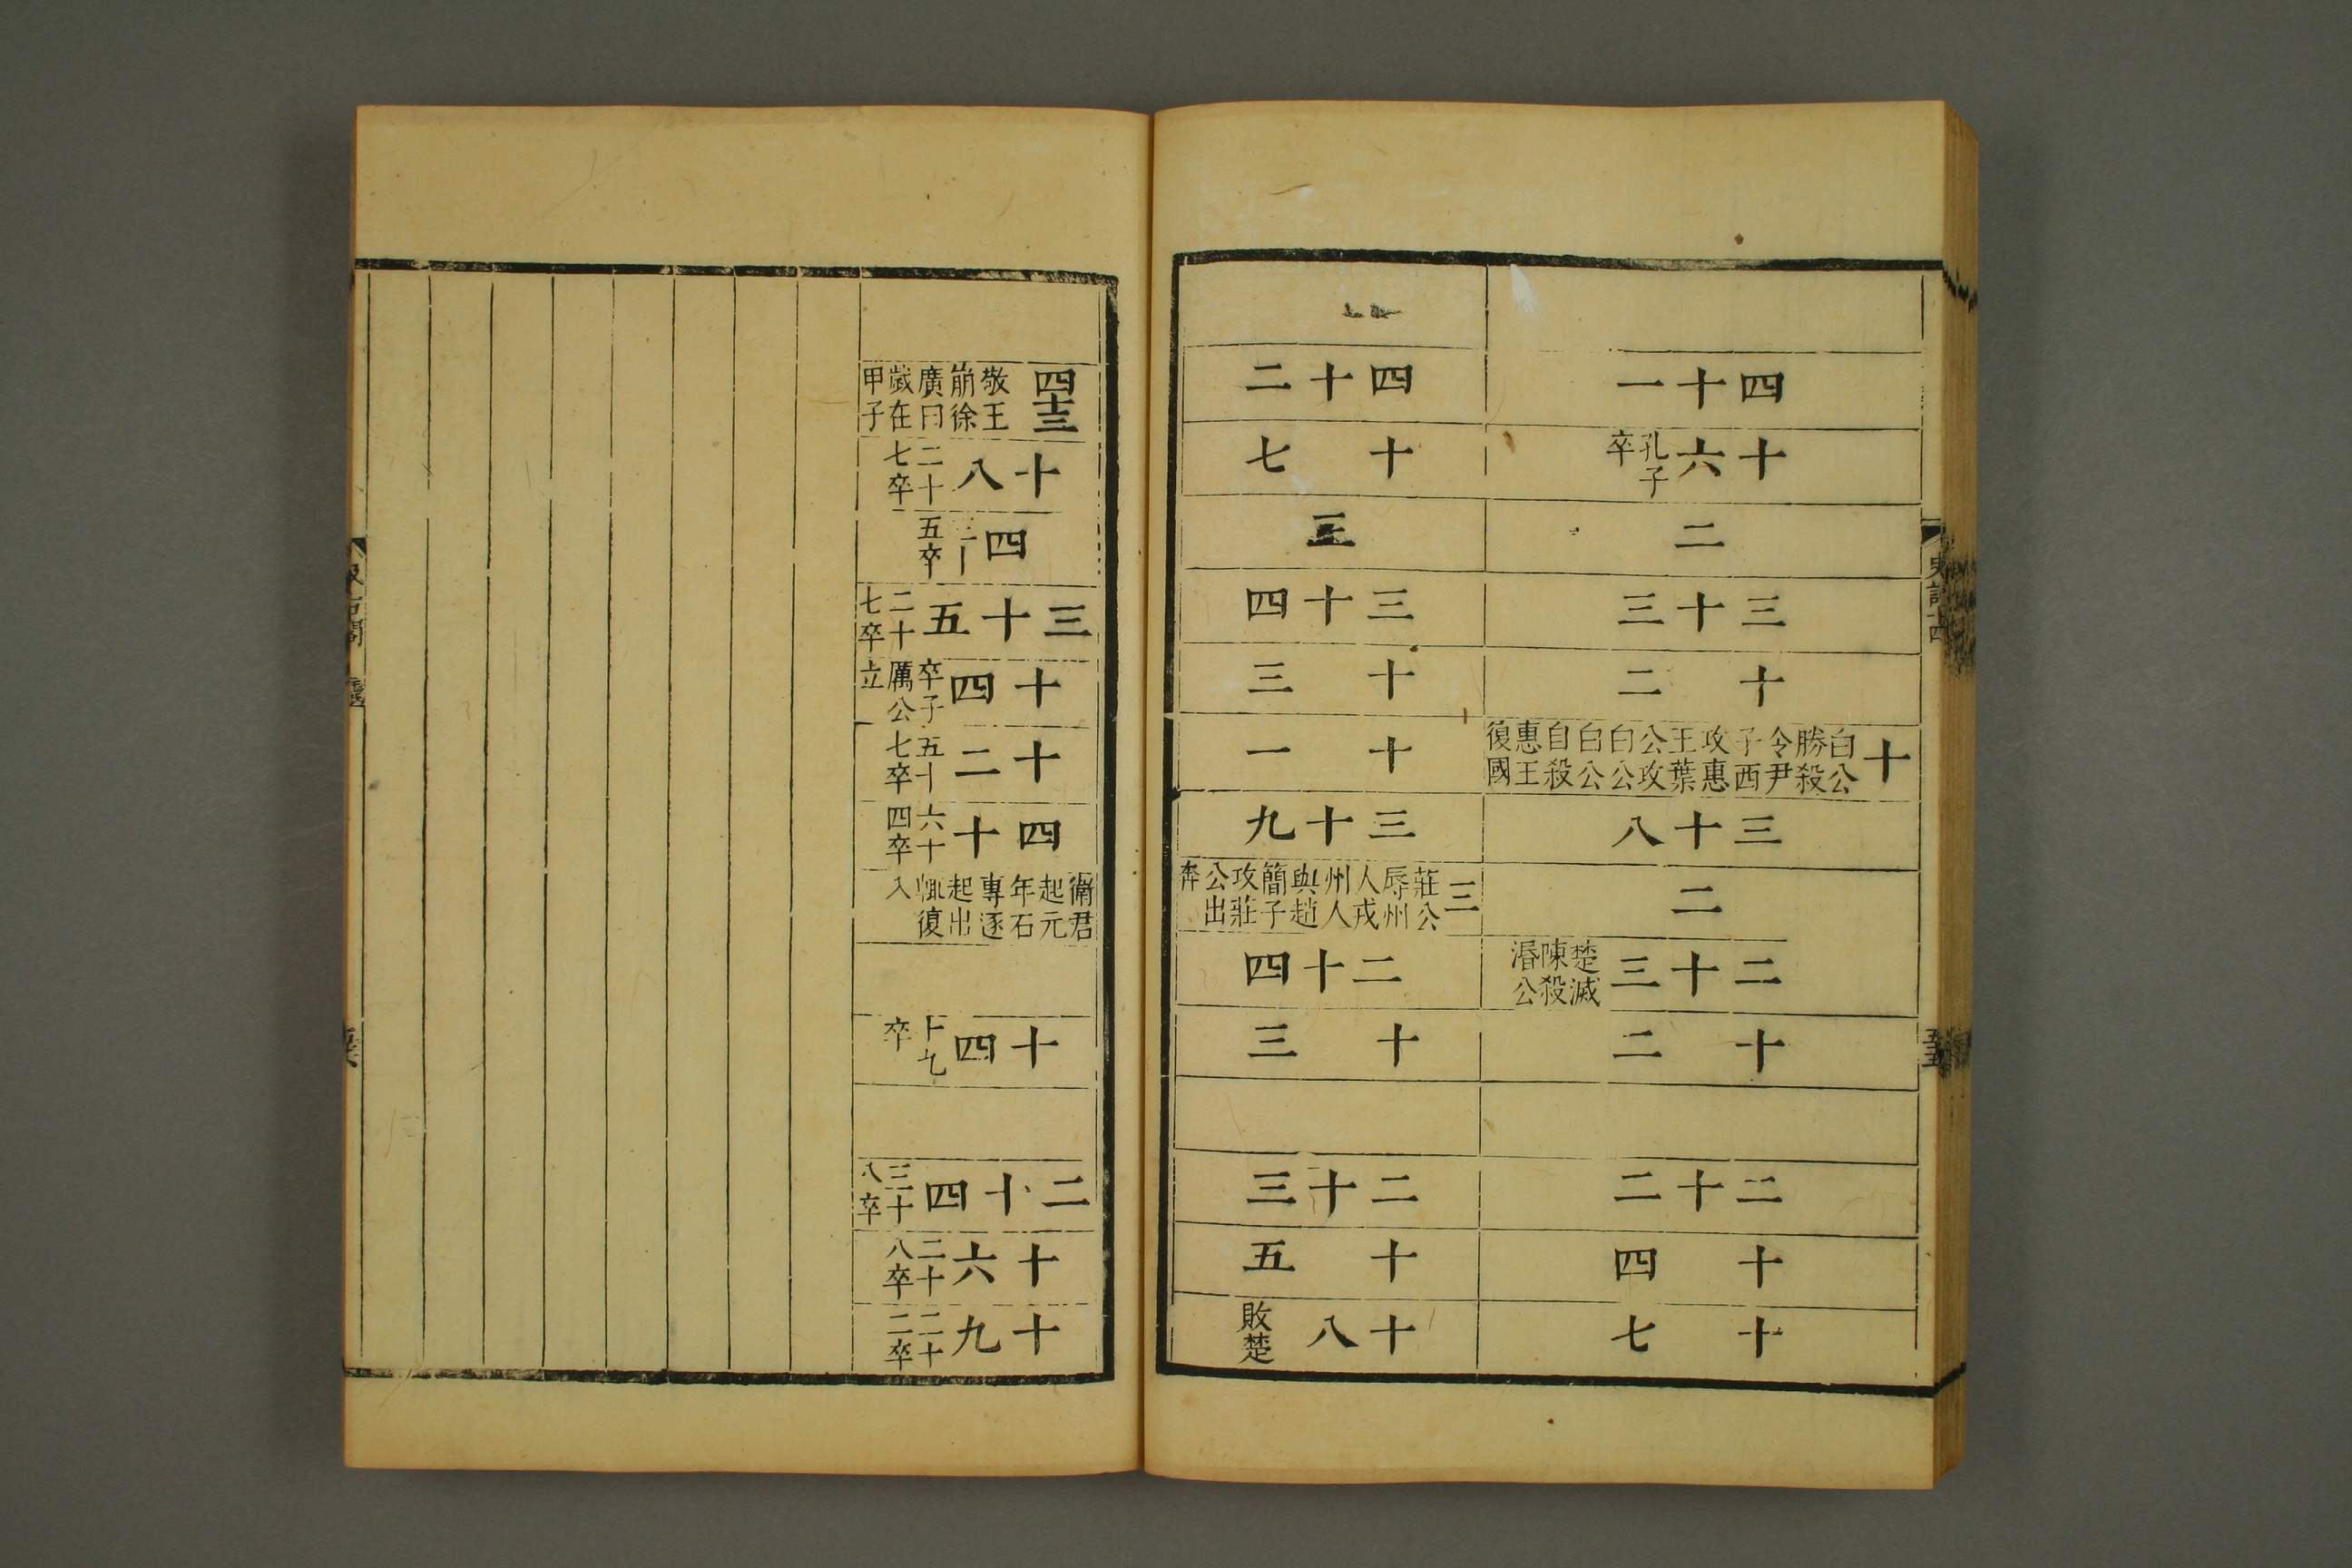 史記十四
五十五
四十一
十六孔子卒
二
三十三
十二
十白公勝殺令尹子西攻惠王葉公攻白公白公自殺惠王復國
三十八
二
二十三楚滅陳殺湣公
十二
二十二
十四
十七
四十二
十七
三
三十四
十三
十一
三十九
三莊公辱州人戎州人與趙簡子攻莊公出奔
二十四
十三
二十三
十五
十八敗楚
四十三敬王崩徐廣曰歲在甲子
十八二十七卒
四 五卒
三十五二十七卒
十四卒子厲公立
十二五十七卒
四十六十四卒
衞君起元年石專逐起出輒復入
十四十九卒
二十四三十八卒
十六二十八卒
十九二十二卒
汲古閣